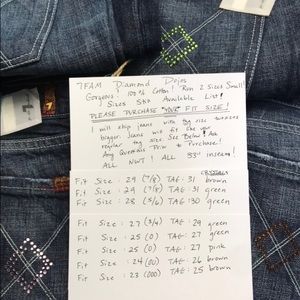 7FAM Diamond Dojos
Gorgeous! 100% Cotton! Run 2 Sizes Small!
! Sizes SKP Available List!
PLEASE PURCHASE "YOUR" FIT SIZE!
I will ship jeans with tag size two sizes
bigger. Jeans will fit like your
regular tag size. See Below! Ask
Any Questions Prior to Purchase!
ALL NWT! ALL 33" inseam!
CRYSTALS
Fit Size: 29 (7/8) TAG: 31 brown
Fit Size: 29 (7/8) TAG: 31 green
Fit Size: 28 (5/6) TAG: 30 green
Fit Size: 27 (3/4) TAG: 29 green
Fit Size: 25 (0) TAG: 27 green
Fit Size: 25 (0) TAG: 27 pink
Fit Size: 24 (00) TAG: 26 brown
Fit Size: 23 (000) TAG: 25 brown